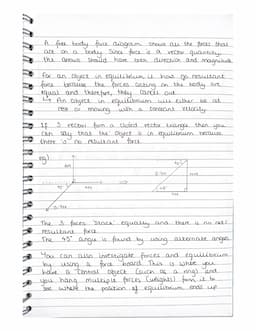 A free body force diagram shows all the forces that
act on a body. Since force is a vector quantity
the arrows should have both direction and magnitude.
For an object in equilibrium it has no resultant
force because the forces acting on the body are
equal and therefore they cancel out.
↳ An object in equilibrium will either be at
rest or moving with a constant velocity
If 3 vectors form a closed vector triangle then you
can say that the object is in equilibrium because
there is no resultant force.
eg)
45°
The 3 forces
equally and there is no net/
resultant force
The 45° angle is found by using alternate angles
You can also investigate forces and equilibrium
by using a force board. This is where you
have a central object (such as a ring) and
you hang multiple forces (weights) from it to
see where the position of equilibrium ends up